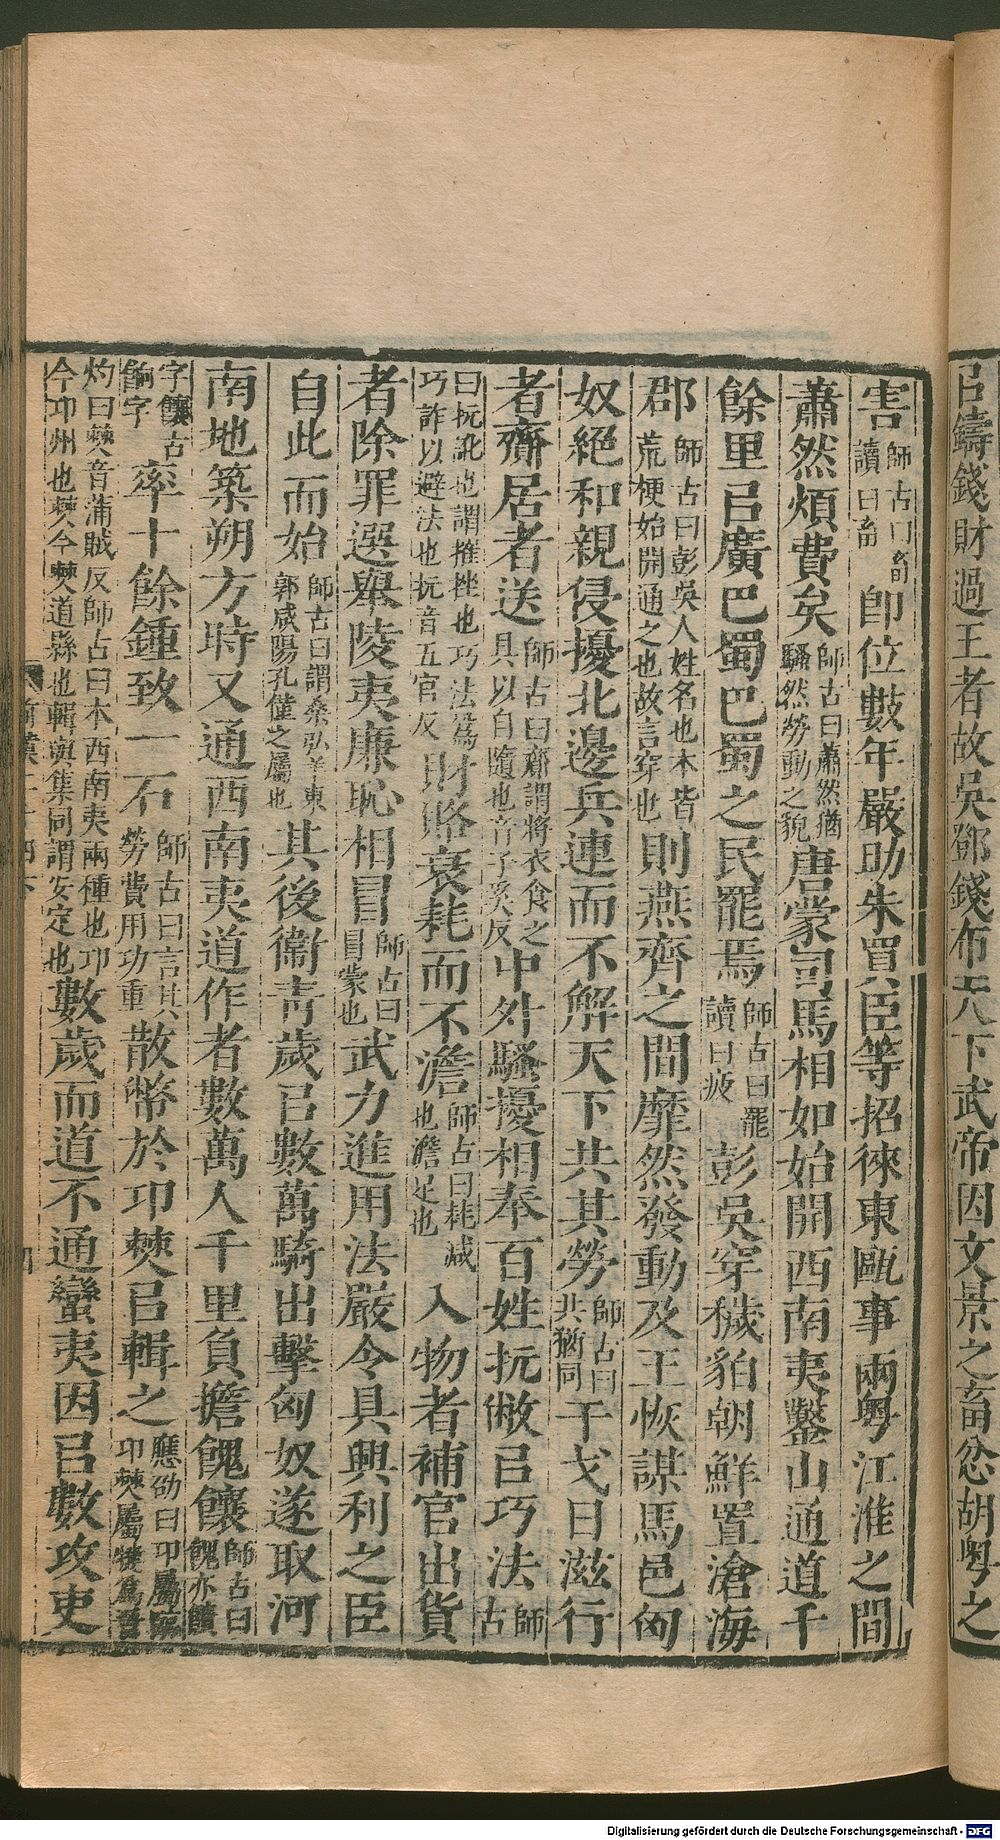 㠯鑄錢財過王者故吳鄧錢布天下武帝因文景之畜忿胡粤之
害師古曰畜讀曰蓄卽位數年嚴助朱買臣等招徠東甌事兩粤江淮之間
蕭然煩費矣師古曰蕭然猶騷然勞動之貌唐蒙司馬相如始開西南夷鑿山通道千
餘里㠯廣巴蜀巴蜀之民罷焉師古曰罷讀曰疲彭吳穿穢貊朝鮮置滄海
郡師古曰彭吳人姓名也本皆荒梗始開通之也故言穿也則燕齊之間靡然發動及王恢謀馬邑匈
奴絕和親侵擾北邊兵連而不解天下共其勞師古曰共猶同干戈日滋行
者齎居者送師古曰齎謂將衣食之具以自隨也音子奚反中外騷擾相奉百姓抏敝㠯巧法師古
曰抏訛也謂摧挫也巧法爲巧詐以避法也抏音五官反財賂衰耗而不澹師古曰耗減也澹足也入物者補官出貨
者除罪選舉陵夷廉恥相冒師古曰冒蒙也武力進用法嚴令具興利之臣
自此而始師古曰謂桑弘羊東郭咸陽孔僅之屬也其後衞青歲㠯數萬騎出擊匈奴遂取河
南地築朔方時又通西南夷道作者數萬人千里負擔餽饟師古曰餽亦饋
字饟古餉字率十餘鍾致一石師古曰言其勞費用功重散幣於卭僰㠯輯之應劭曰卭屬臨卭僰屬犍爲晉
灼曰僰音蒲賊反師古曰本西南夷兩種也卭今卭州也僰今僰道縣也輯與集同謂安定也數歲而道不通蠻夷因㠯數攻吏
Digitalisierung gefördert durch die Deutsche Forschungsgemeinschaft - DFG